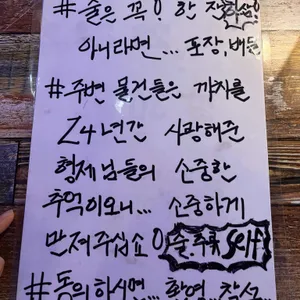 #술은 꼭! 한 잔이상!
아니라면... 포장, 배달
#주변 물건들은 까치를
24년간 사랑해준
형제님들의 소중한
추억이오니... 소중하게
만져주십쇼! 술, 주류 Self
#동의하시면... 환영